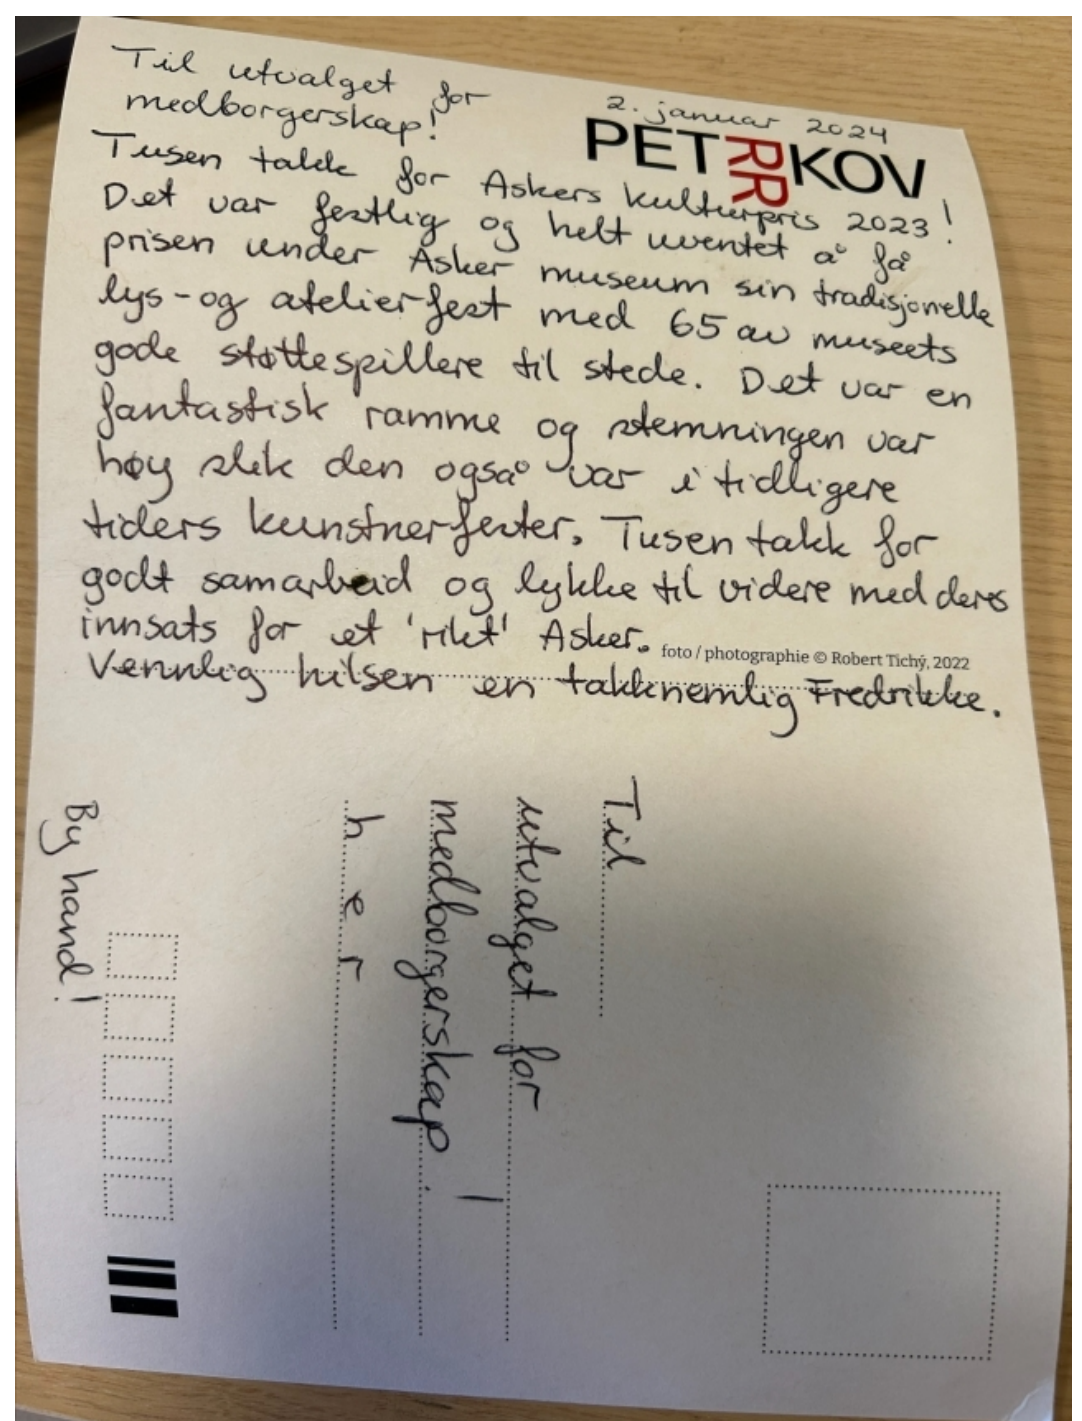 Til utvalget for
medborgerskap!
2. januar 2024
PETRRKOV
Tusen takk for Askers kulturpris 2023!
Det var festlig og helt uventet å få
prisen under Asker museum sin tradisjonelle
lys-og atelierfest med 65 av museets
gode støttespillere til stede. Det var en
fantastisk ramme og stemningen var
høy slik den også var i tidligere
tiders kunstnerfester. Tusen takk for
godt samarbeid og lykke til videre med deres
innsats for et 'rikt' Asker.
foto / photographie © Robert Tichý, 2022
Vennlig hilsen en takknemlig Fredrikke.
Til
utvalget for
medborgerskap!
her
By hand!